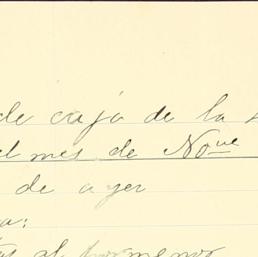 de caja de la
el mes de Nove
de ayer
al pormenor